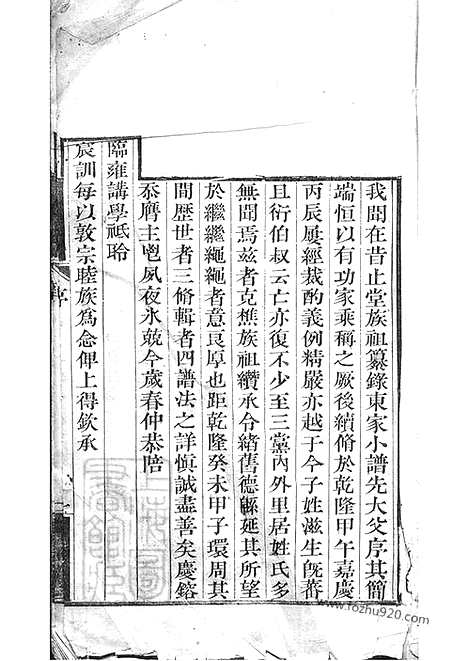 我聞在昔止堂族祖纂錄東家小譜先大父序其簡
端恒以有功家乘稱之厥後續脩於乾隆甲午嘉慶
丙辰屢經裁酌義例精嚴亦越于今子姓滋生旣蕃
且衍伯叔云亡亦復不少至三黨內外里居姓氏多
無聞焉茲者克樵族祖纘承令緒舊德緜延其所望
於繼繼繩繩者意良厚也距乾隆癸未甲子環周其
間歷世者三脩輯者四譜法之詳愼誠盡善矣慶鎔
忝膺主鬯夙夜氷兢今歲春仲恭陪
臨雍講學祗聆
宸訓每以敦宗睦族為念俾上得欽承
序
www.fozhu920.com